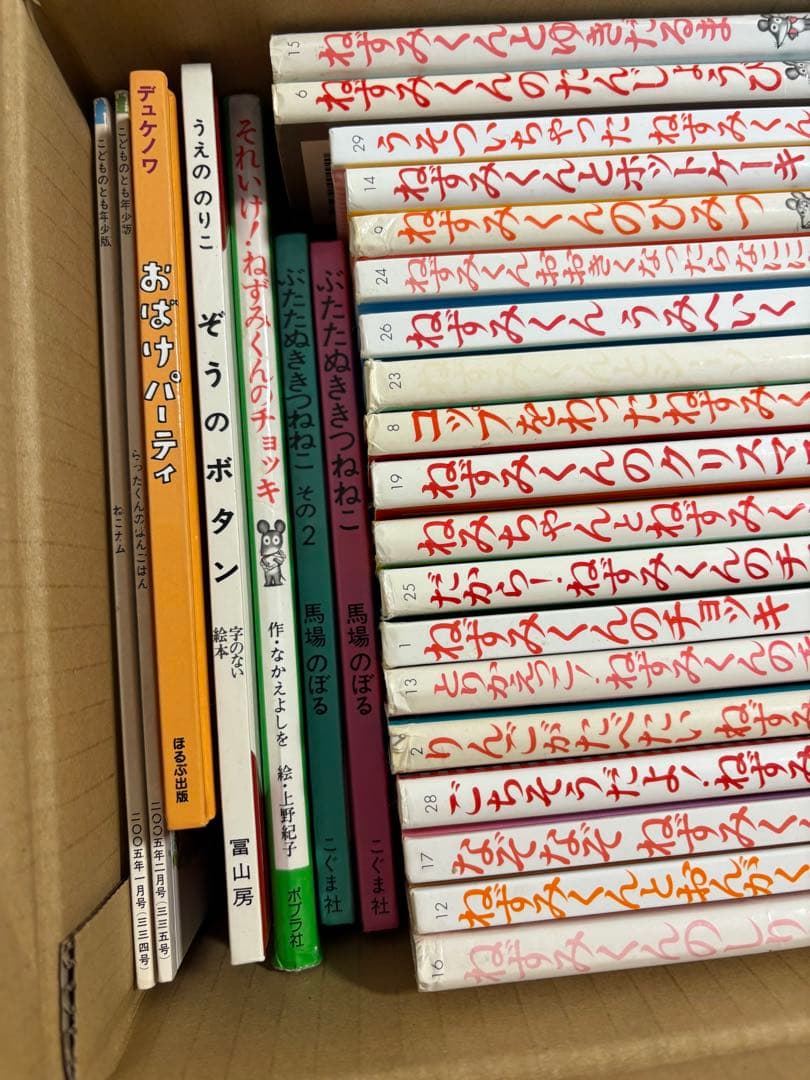 こどものとも年少版
ねこナム
二〇〇五年一月号(三三四号)
こどものとも年少版
らったくんのばんごはん
二〇〇五年二月号(三三五号)
デュケノワ
おばけパーティ
ほるぷ出版
うえののりこ
ぞうのボタン
字のない
絵本
冨山房
それいけ!ねずみくんのチョッキ
作・なかえよしを 絵・上野紀子
ポプラ社
ぶたたぬききつねねこ その2
馬場のぼる
こぐま社
ぶたたぬききつねねこ
馬場のぼる
こぐま社
15 ねずみくんとゆきだるま
6 ねずみくんのたんじょうび
29 うそついちゃった ねずみくん
14 ねずみくんとホットケーキ
9 ねずみくんのひみつ
24 ねずみくん おおきくなったらなにに
26 ねずみくん うみへいく
23
8 コップをわったねずみく
19 ねずみくんのクリスマ
ねみちゃんとねずみく
25 だから!ねずみくんのチ
1 ねずみくんのチョッキ
13 とりかえっこ!ねずみくんのチ
2 りんごがたべたい ねずみ
28 ごちそうだよ!ねずみ
17 なぞなぞ ねずみく
12 ねずみくんとおんがく
16 ねずみくんのしり